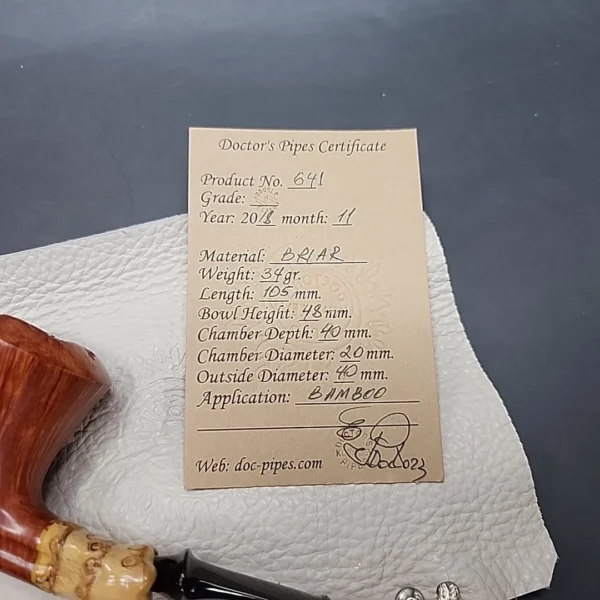 Doctor's Pipes Certificate
Product No. 641
Grade:
Year: 2018 month: 11
Material: BRIAR
Weight: 34 gr.
Length: 105 mm.
Bowl Height: 48 mm.
Chamber Depth: 40 mm.
Chamber Diameter: 20 mm.
Outside Diameter: 40 mm.
Application: BAMBOO
Web: doc-pipes.com